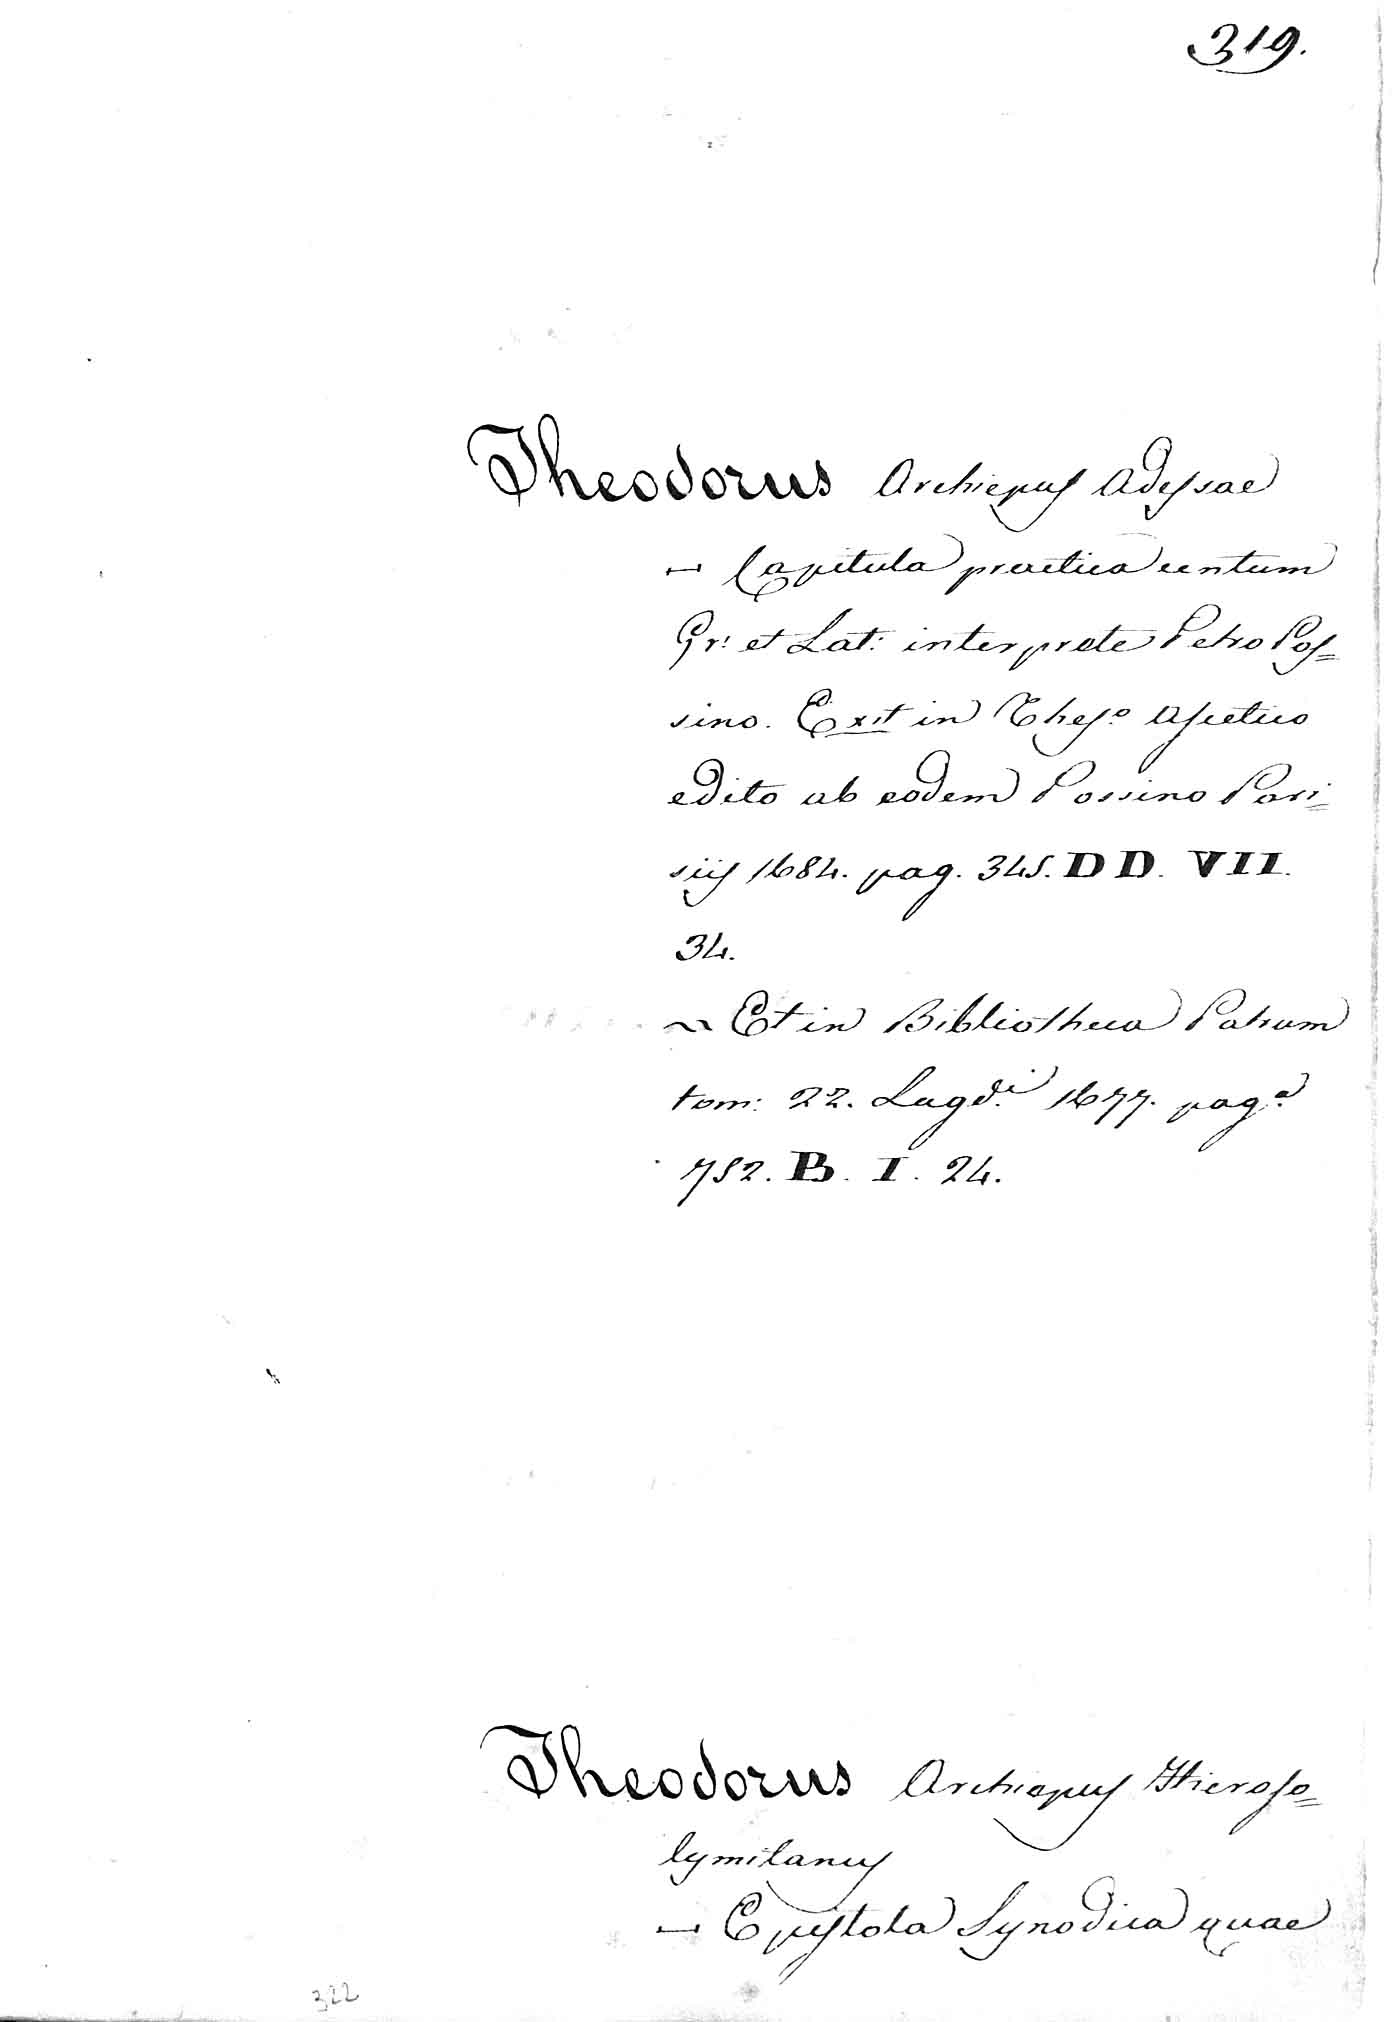 319.
Theodorus Archiepus Adessae
— Capitula practica centum
Gr: et Lat: interprete Petro Pos=
sino. Exit in Theso Ascetico
edito ab eodem Possino Pari=
siis 1684. pag. 345. DD. VII.
34.
~ Et in Bibliotheca Patrum
tom: 22. Lugdi 1677. paga
752. B. I. 24.
Theodorus Archiepus Hieroso=
lymitanus
— Epistola Synodica quae
322